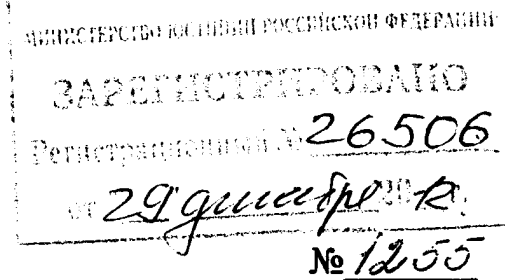 МИНИСТЕРСТВО ЮСТИЦИИ РОССИЙСКОЙ ФЕДЕРАЦИИ
ЗАРЕГИСТРИРОВАНО
Регистрационный № 26506
от 29 декабря 2012.
№ 1255